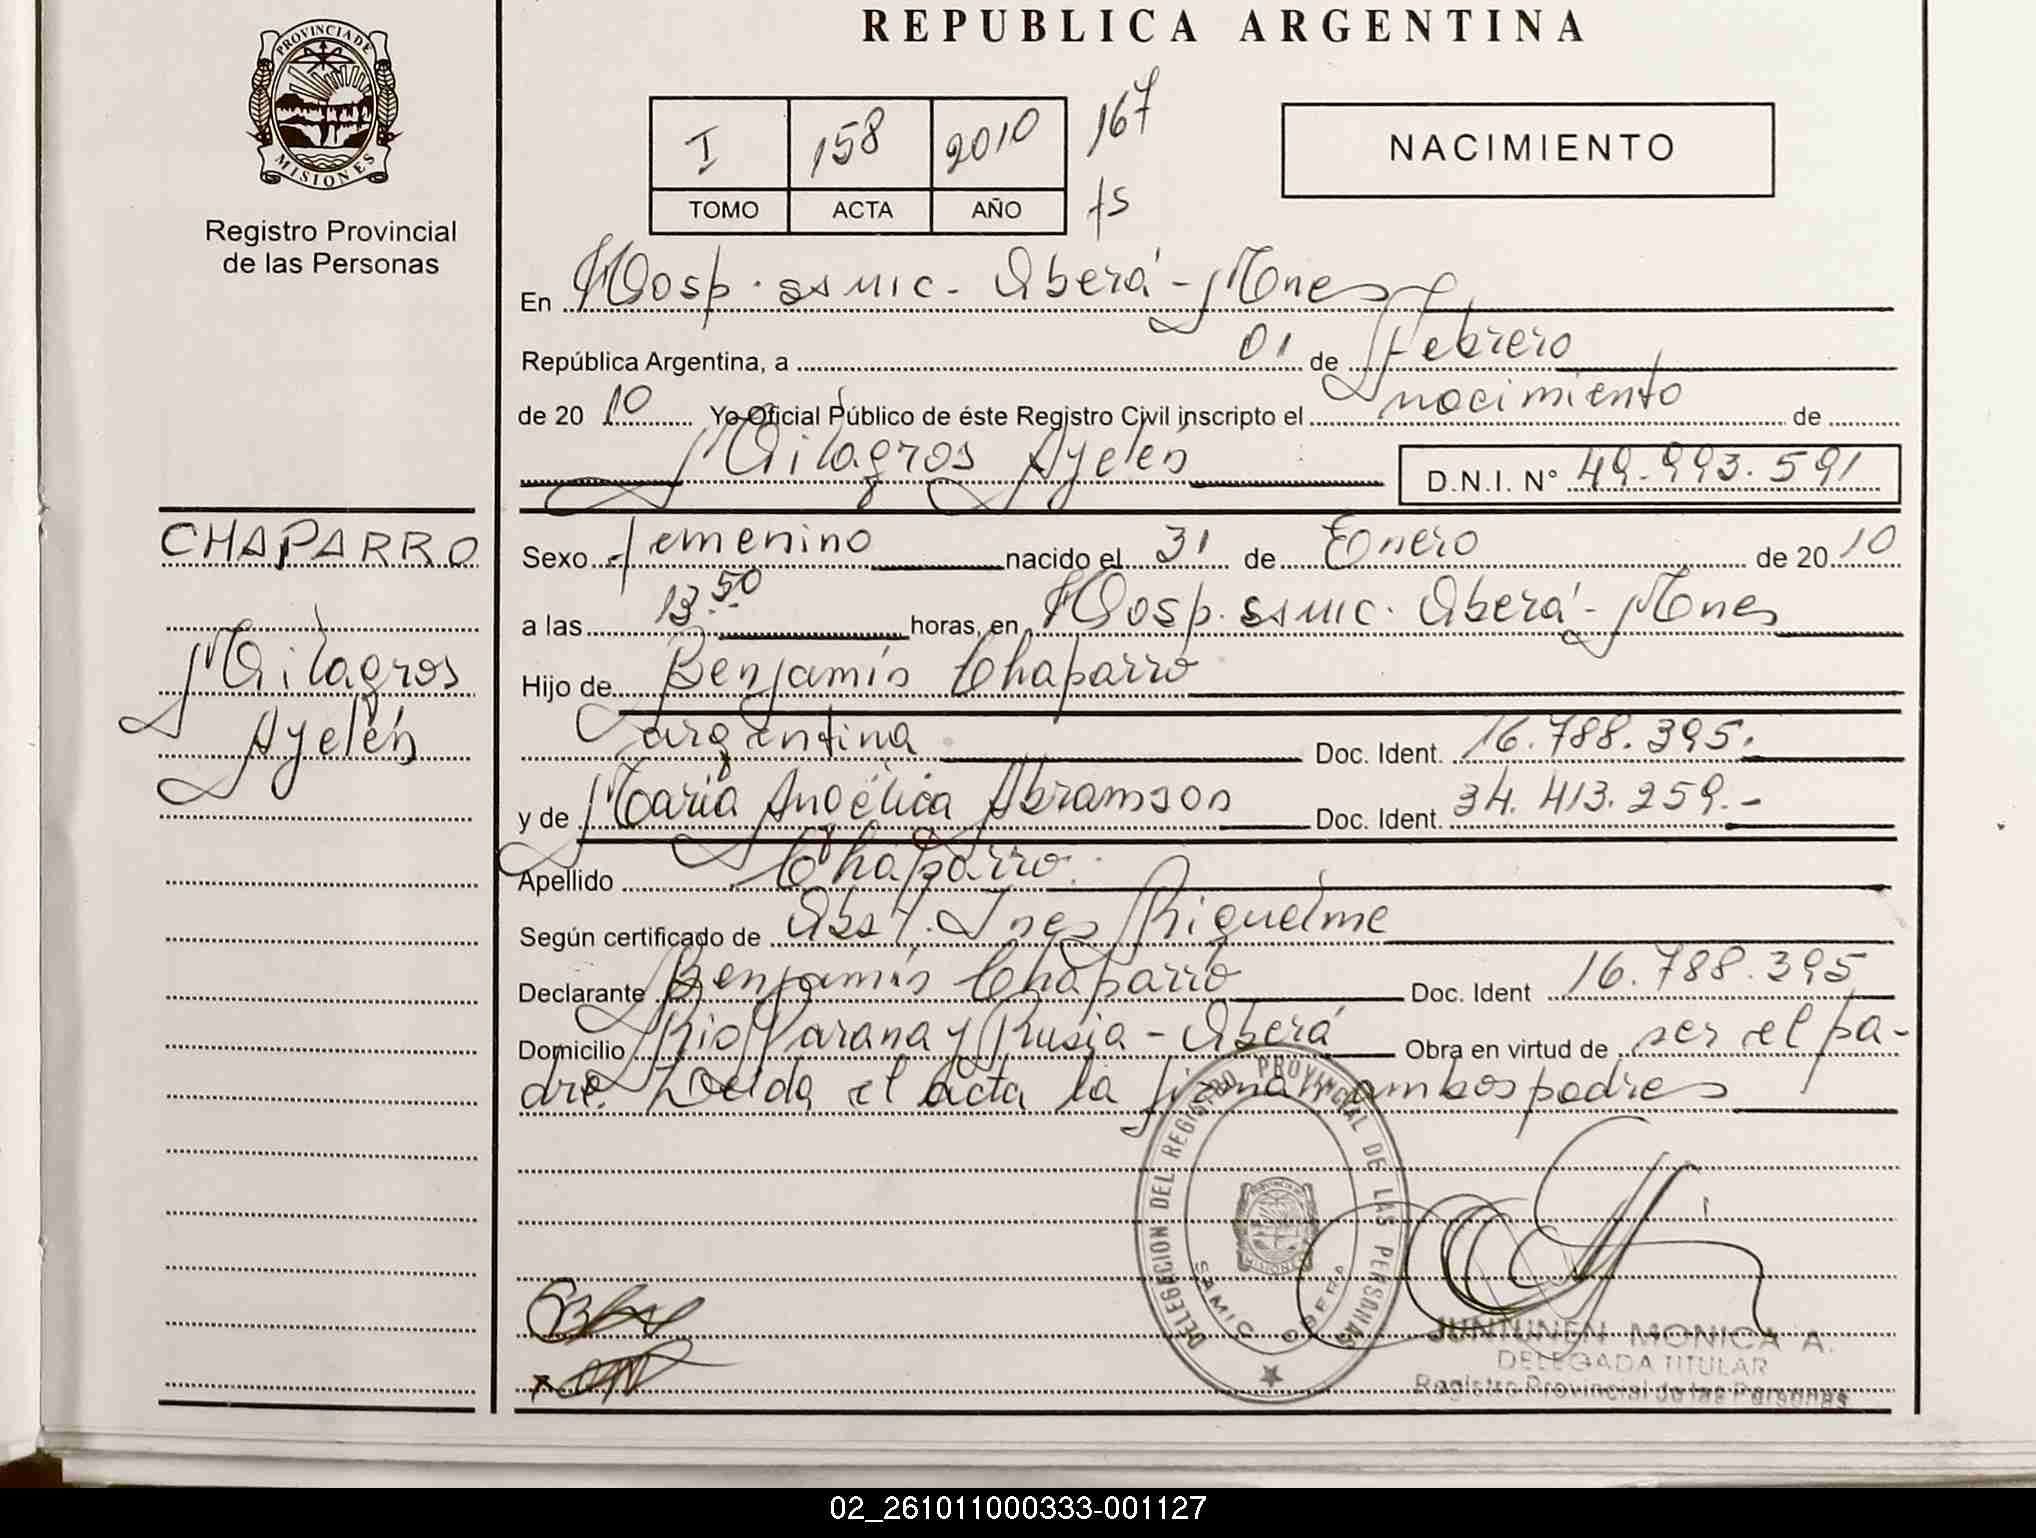 REPUBLICA ARGENTINA
PROVINCIA DE
MISIONES
Registro Provincial
de las Personas
I 158 2010 167
TOMO ACTA AÑO fs
NACIMIENTO
En Hosp. SAMIC - Oberá - Mnes
República Argentina, a 01 de Febrero
de 2010 Yo Oficial Público de éste Registro Civil inscripto el nacimiento de
Milagros Ayelén
D.N.I. N° 49.993.591
CHAPARRO
Milagros
Ayelén
Sexo femenino nacido el 31 de Enero de 2010
a las 13.50 horas, en Hosp. SAMIC. Oberá - Mnes
Hijo de Benjamín Chaparro
argentina Doc. Ident. 16.788.395.
y de Maria Angélica Abramson Doc. Ident. 34.413.259.-
Apellido Chaparro.
Según certificado de Obst. Ines Riquelme
Declarante Benjamín Chaparro Doc. Ident 16.788.395
Domicilio Rio Parana y Rusia - Oberá Obra en virtud de ser el pa-
dre. Leida el acta la firman ambos padres
DELEGACION DEL REGISTRO PROVINCIAL DE LAS PERSONAS
SAMIC OBERA
JUNTUNEN MONICA A.
DELEGADA TITULAR
Registro Provincial de las Personas
02_261011000333-001127